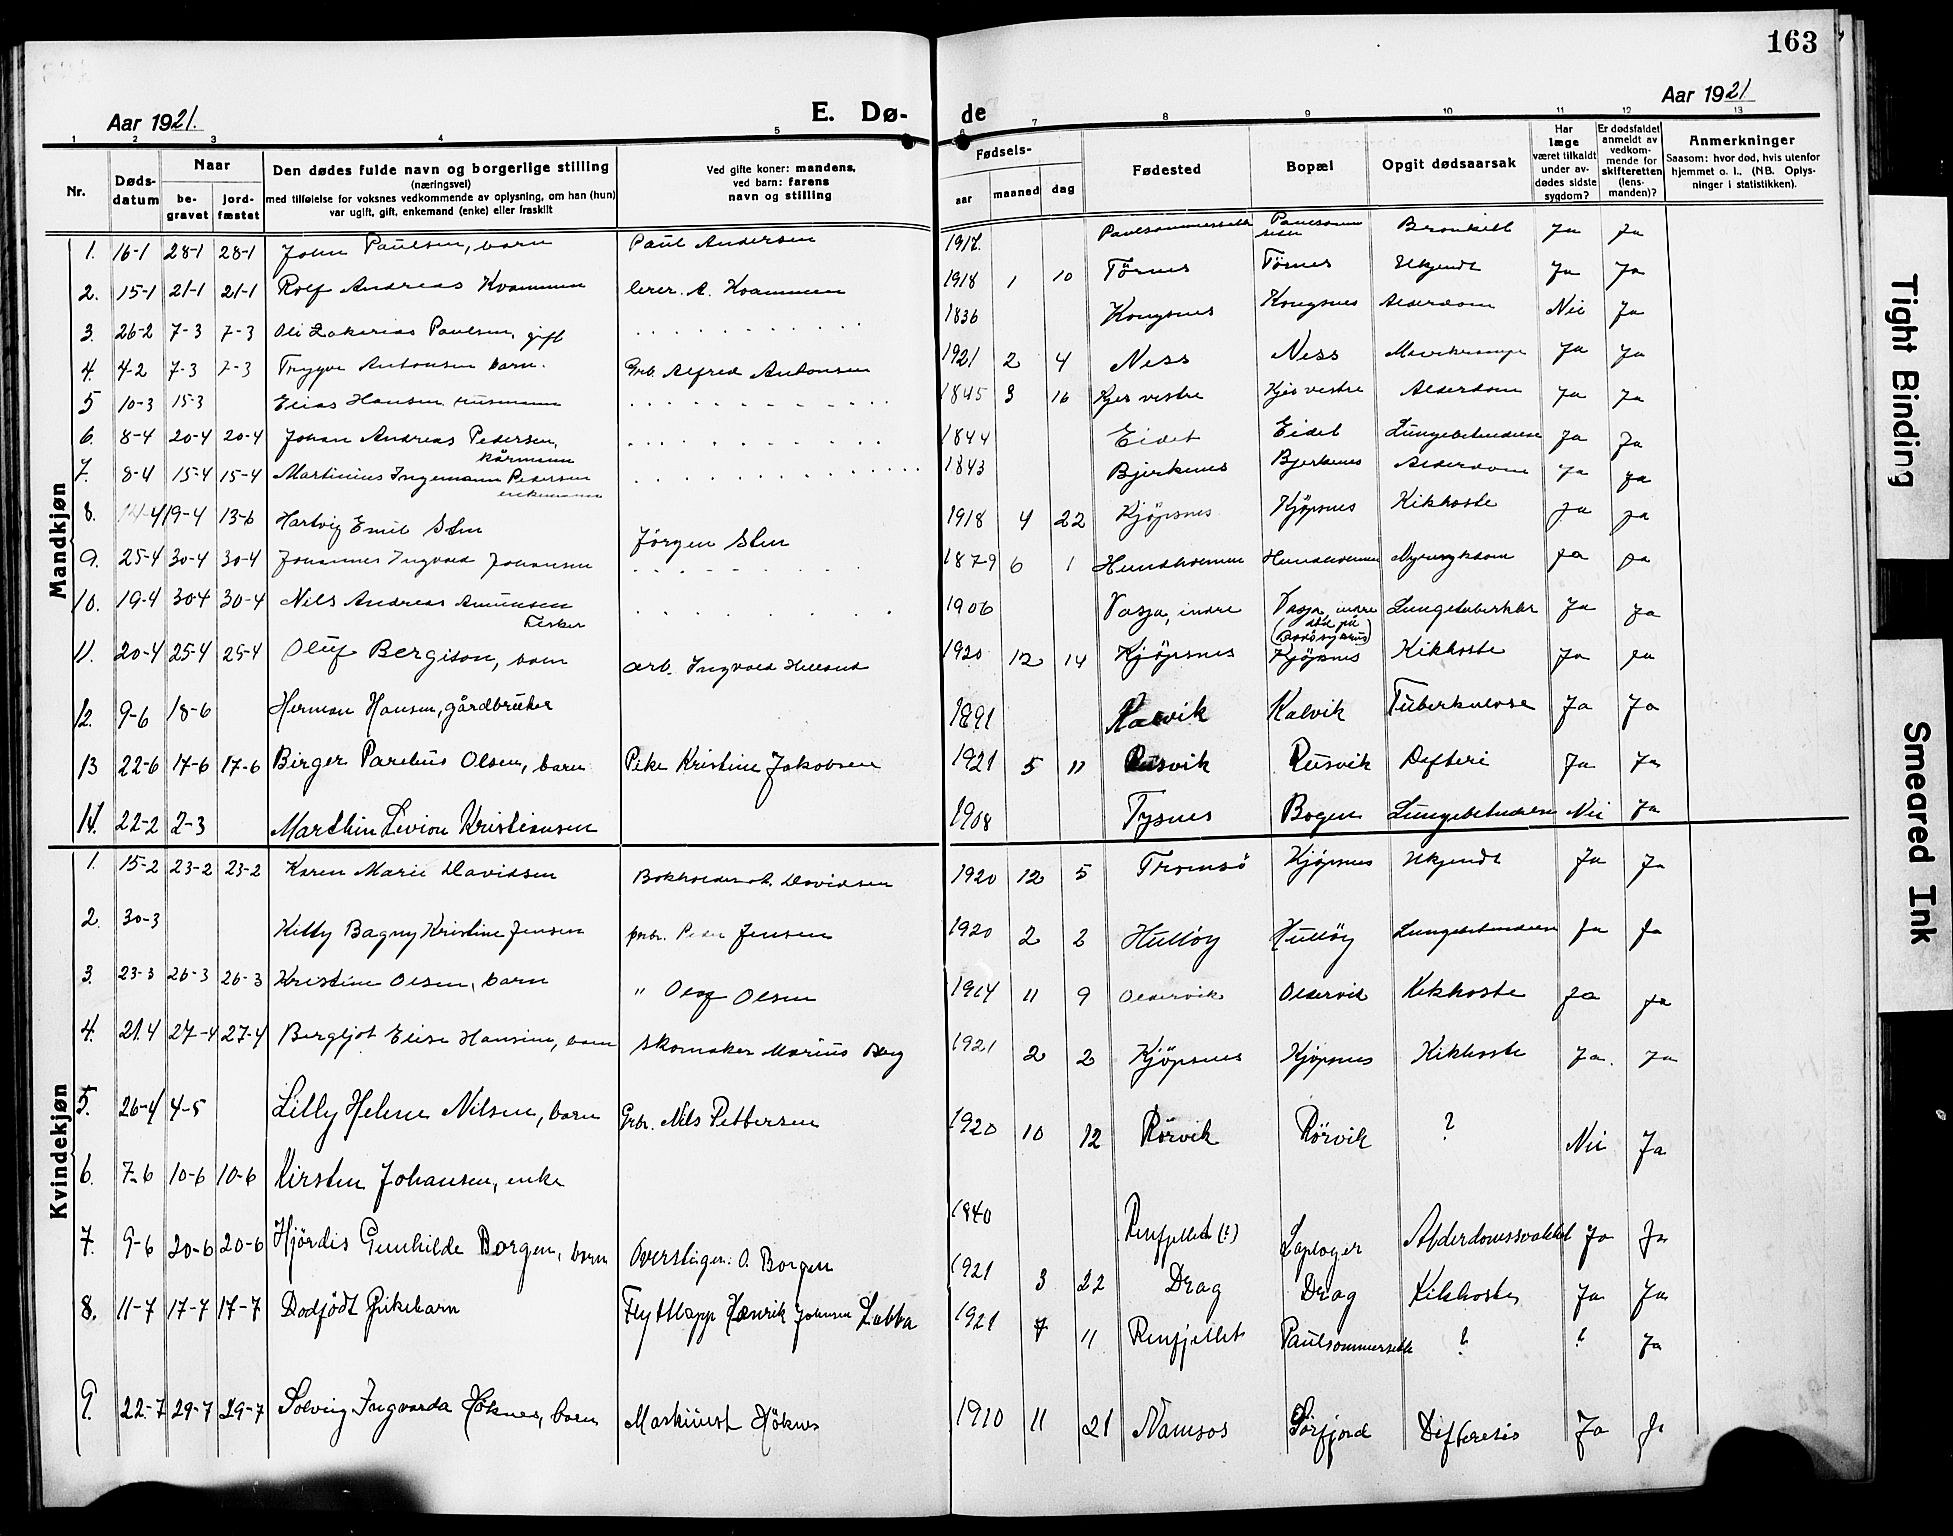 163
Aar 1921.
E. Dø-
de
Aar 1921
1 2 3 4 5 6 7 8 9 10 11 12 13
Nr.
Døds-
datum
Naar
be-
gravet
jord-
fæstet
Den dødes fulde navn og borgerlige stilling
(næringsvei)
med tilføielse for voksnes vedkommende av oplysning, om han (hun)
var ugift, gift, enkemand (enke) eller fraskilt
Ved gifte koner: mandens,
ved barn: farens
navn og stilling
Fødsels-
aar
maaned
dag
Fødested
Bopæl
Opgit dødsaarsak
Har
læge
været tilkaldt
under av-
dødes sidste
sygdom?
Er dødsfaldet
anmeldt av
vedkom-
mende for
skifteretten
(lens-
manden)?
Anmerkninger
Saasom: hvor død, hvis utenfor
hjemmet o. l.. (NB. Oplys-
ninger i statistikken).
Mandkjøn
1. 16-1 28-1 28-1 John Paulsen, barn Paul Andersen 1917. Ja Ja
2. 15-1 21-1 21-1 Rolf Andreas Kvammen lærer. A. Kvammen 1918 1 10 Tørnes Tørnes Ukjendt Ja Ja
3. 26-2 7-3 7-3 Oli Zakarias Paulsen, gift 1836 Kongsnes Kongsnes Alderdom Nei Ja
4. 4-2 7-3 7-3 Trygve Antonsen barn. Grb. Alfred Antonsen 1921 2 4 Ness Ness Ja Ja
5 10-3 15-3 Elias Hansen husmann 1845 3 16 Kjer vestre Kjer vestre Alderdom Ja Ja
6. 8-4 20-4 20-4 Johan Andreas Pedersen, kårmann 1844 Eidet Eidet Lungebetendelse Ja Ja
7. 8-4 15-4 15-4 Martinius Ingemann Pedersen enkemann 1843 Bjerknes Bjerknes Alderdom Ja Ja
8. 14-4 19-4 13-6 Hartvig Emil Sten Jørgen Sten 1918 4 22 Kjöpsnes Kjöpsnes Kikhoste Ja Ja
9. 25-4 30-4 30-4 Johannes Ingvald Johansen 1879 6 1 Hundholmen Hundholmen Nyresykdom Ja Ja
10. 19-4 30-4 30-4 Nils Andreas Amundsen Fisker 1906 Vasja, indre Vasja, indre Lungetuberkler Ja Ja
(død på
Bodø sykehus)
11. 20-4 25-4 25-4 Oluf Bergiton, barn arb. Ingvald Helland 1920 12 14 Kjöpsnes Kjöpsnes Kikhoste Ja Ja
12. 9-6 18-6 Herman Hansen, gårdbruker 1891 Kalvik Kalvik Tuberkulose Ja Ja
13 22-6 17-6 17-6 Birger Parelius Olsen, barn Pike Kristine Jakobsen 1921 5 11 Rusvik Rusvik Difteri Ja Ja
14. 22-2 2-3 Marthin Livion Kristiansen 1908 Tysnes Bogen Lungebetendelse Nei Ja
Kvindekjøn
1. 15-2 23-2 23-2 Karen Marie Davidsen Bokholder A. Davidsen 1920 12 5 Tromsö Kjöpsnes Ukjendt Ja Ja
2. 30-3 Kitty Bagny Kristine Jensen Peder Jensen 1920 2 2 Hulløy Hulløy Lungebetendelse Ja Ja
3. 23-3 26-3 26-3 Kristine Olsen, barn " Olaf Olsen 1914 11 9 Oldervik Oldervik Kikhoste Ja Ja
4. 21.4 27-4 27-4 Bergljot Elise Hansine, barn Skomaker Marius Berg 1921 2 2 Kjöpsnes Kjöpsnes Kikhoste Ja. Ja
5. 26-4 4-5 Lilly Helene Nilsen, barn Grbr. Nils Pettersen 1920 10 12 Rörvik Rörvik ? Nei Ja
6. 7-6 10-6 10-6 Kirsten Johansen, enke 1840 Renfjellet (?) Laploger Alderdomssvakhet Ja Ja
7. 9-6 20-6 20-6 Hjördis Gunhilde Borgen, barn Overstiger. O. Borgen 1921 3 22 Drag Drag Kikhoste Ja Ja
8. 11-7 17-7 17-7 Dødfödt Pikebarn Flyttlapp Henrik Johnsen Labba 1921 7 11 Renfjellet Paulsommersæte ? ? Ja
9. 22-7 29-7 29-7 Solveig Ingvarda Höknes, barn Maskinist Höknes 1910 11 21 Namsos Sörfjord Difteritis Ja Ja
Tight Binding
Smeared Ink